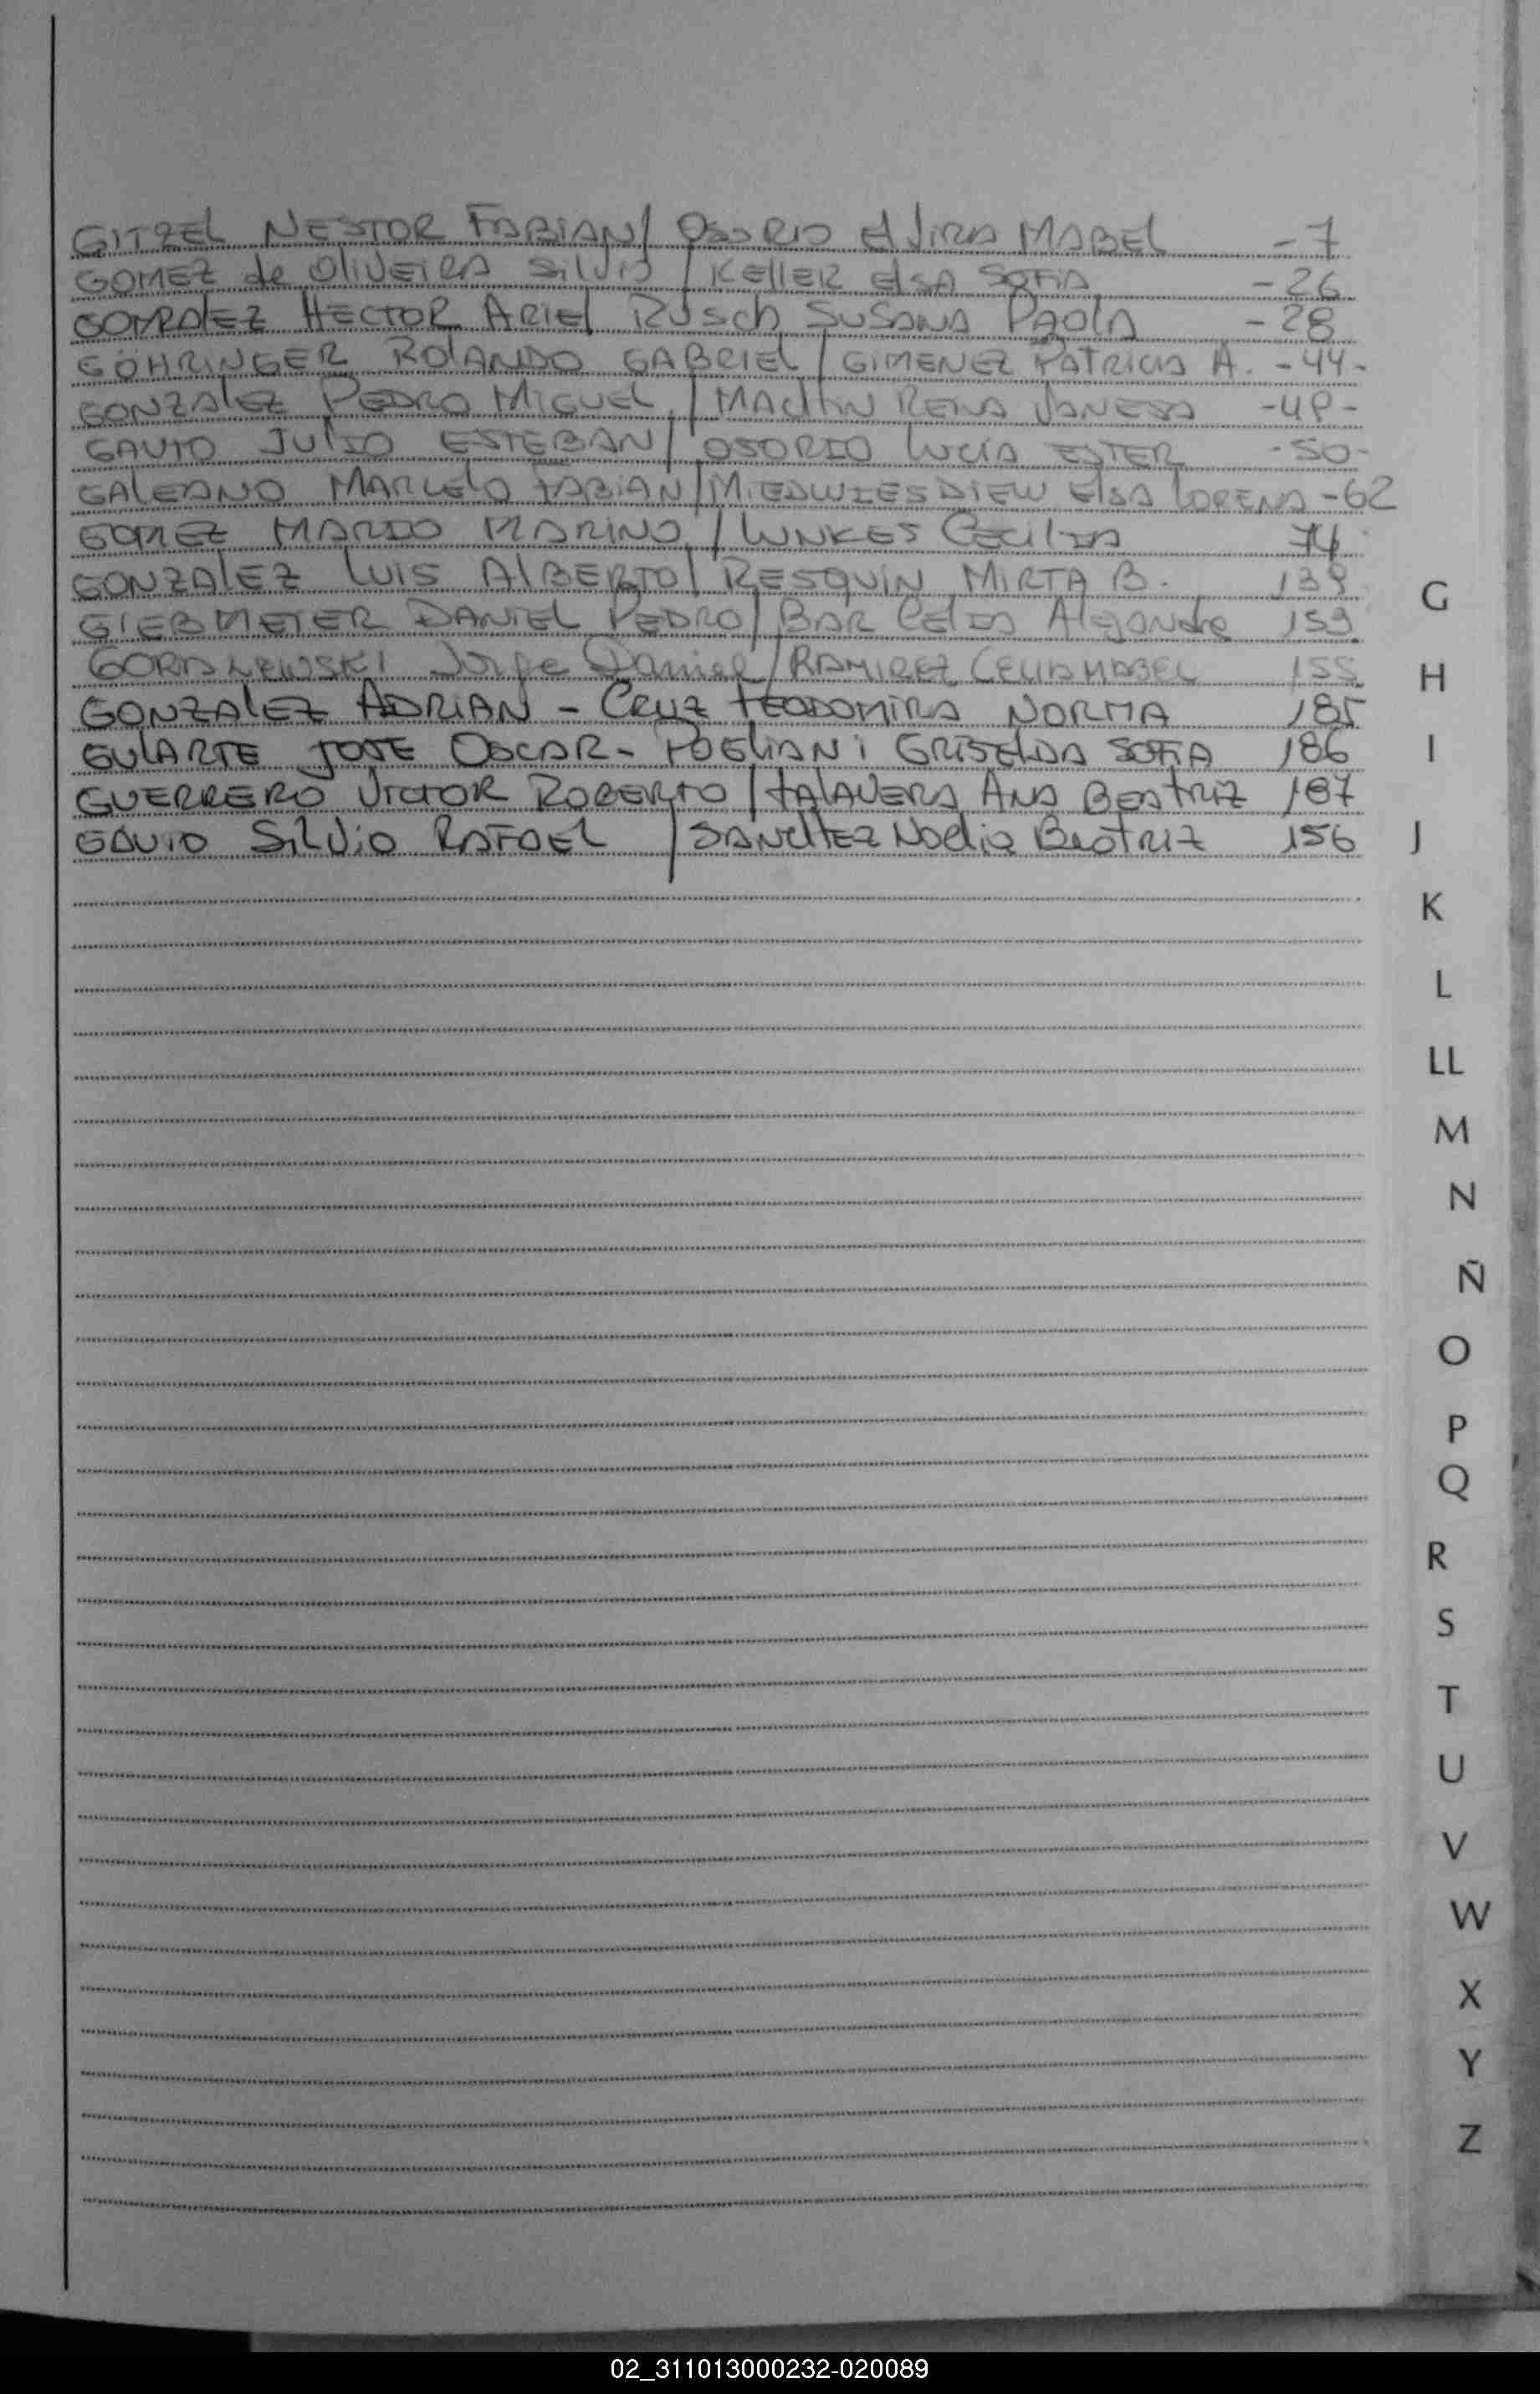 GITZEL NESTOR FABIAN / OSORIO ElVIRA MABEL -7
GOMEZ de OliVEIRA SilVIO / KEllER ElSA SOFIA -26
HECTOR ARIEl RUSCh SUSANA PAOlA -28
GÖHRINGER ROlANDO GABRIEl / GIMENEZ PATRICIA A. -44-
GONZAlEZ PEDRO MIGUEL / REINA VANESA
GAUTO JUlIO ESTEBAN / OSORIO lUCÍA ESTER -50-
GALEANO MARCElO FABIAN / ElSA lORENA -62
GOMEZ MARIO MARINO / lUNKES CECIlIA 74
GONZAlEZ lUIS AlBERTO / RESQUÍN MIRTA B. 139
GIEBMEIER DANIEL PEDRO / BAR CElIA AlEjANdRa 153
Jorge Daniel / RAMIREZ CELIA MABEL 155
GONZAlEZ ADRIAN - CRUZ TEODOMIRA NORMA 185
GUlARTE JOSE OSCAR - POGlIANi GRISElDA SOFIA 186
GUERRERO VICTOR ROBERTO / TAlAVERA ANA BEATRIZ 187
GAUTO SilViO RAFAEL / SANCHEZ Noelia BEATRIZ 156
G
H
I
J
K
L
LL
M
N
Ñ
O
P
Q
R
S
T
U
V
W
X
Y
Z
02_311013000232-020089